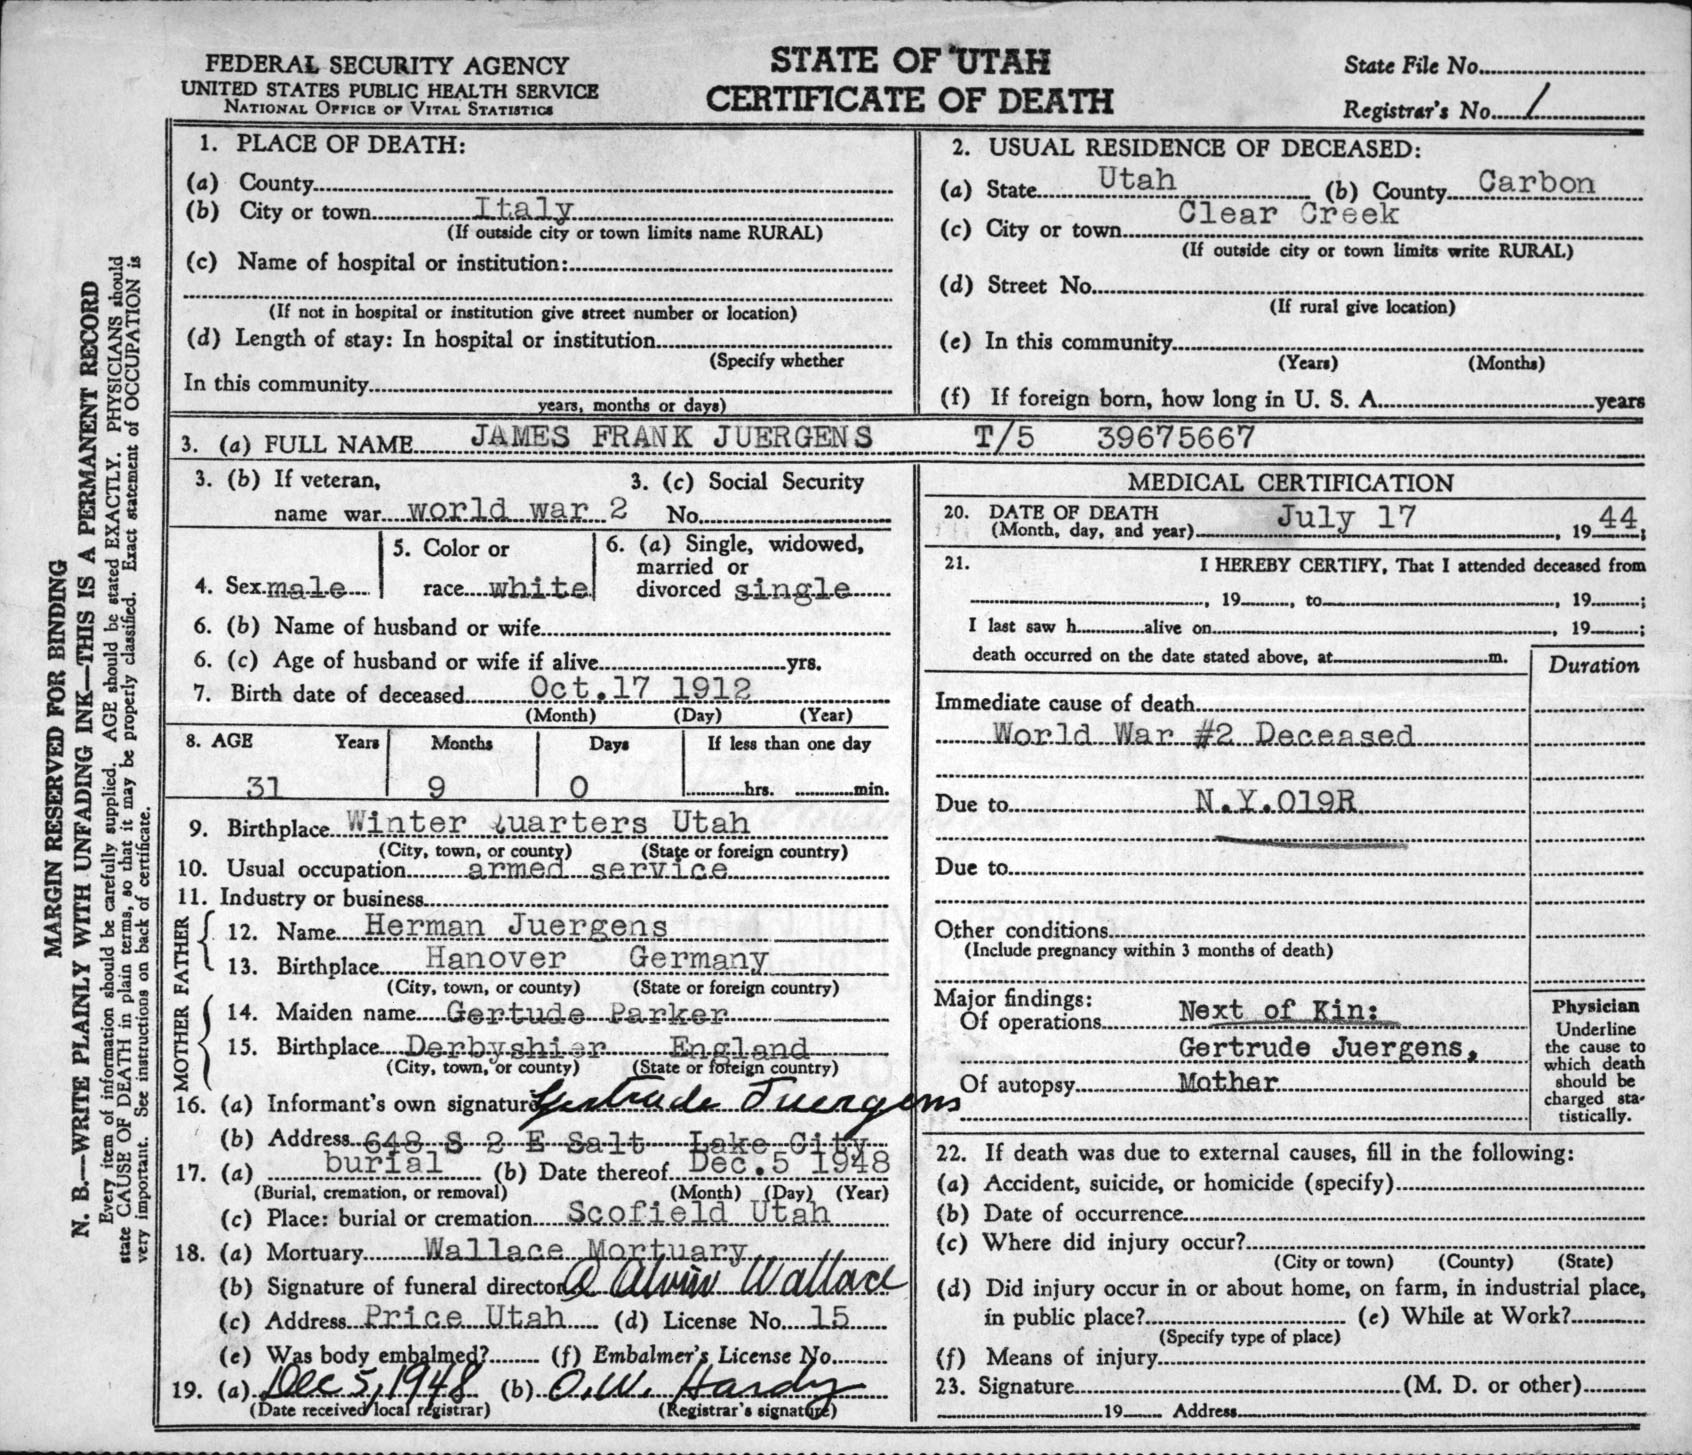 FEDERAL SECURITY AGENCY
UNITED STATES PUBLIC HEALTH SERVICE
NATIONAL OFFICE OF VITAL STATISTICS
STATE OF UTAH
CERTIFICATE OF DEATH
State File No.
Registrar's No. 1
MARGIN RESERVED FOR BINDING
N. B.—WRITE PLAINLY WITH UNFADING INK—THIS IS A PERMANENT RECORD
Every item of information should be carefully supplied. AGE should be stated EXACTLY. PHYSICIANS should
state CAUSE OF DEATH in plain terms, so that it may be properly classified. Exact statement of OCCUPATION is
very important. See instructions on back of certificate.
1. PLACE OF DEATH:
(a) County
(b) City or town Italy
(If outside city or town limits name RURAL)
(c) Name of hospital or institution:
(If not in hospital or institution give street number or location)
(d) Length of stay: In hospital or institution
(Specify whether
In this community
years, months or days)
2. USUAL RESIDENCE OF DECEASED:
(a) State Utah (b) County Carbon
(c) City or town Clear Creek
(If outside city or town limits write RURAL)
(d) Street No.
(If rural give location)
(e) In this community
(Years) (Months)
(f) If foreign born, how long in U. S. A. years
3. (a) FULL NAME JAMES FRANK JUERGENS T/5 39675667
3. (b) If veteran, 3. (c) Social Security
name war world war 2 No.
4. Sex male
5. Color or
race white
6. (a) Single, widowed,
married or
divorced single
6. (b) Name of husband or wife
6. (c) Age of husband or wife if alive yrs.
7. Birth date of deceased Oct.17 1912
(Month) (Day) (Year)
8. AGE Years Months Days If less than one day
31 9 0 hrs. min.
9. Birthplace Winter Quarters Utah
(City, town, or county) (State or foreign country)
10. Usual occupation armed service
11. Industry or business
FATHER
12. Name Herman Juergens
13. Birthplace Hanover Germany
(City, town, or county) (State or foreign country)
MOTHER
14. Maiden name Gertude Parker
15. Birthplace Derbyshier England
(City, town, or county) (State or foreign country)
16. (a) Informant's own signature Gertrude Juergens
(b) Address 648 S 2 E Salt Lake City
17. (a) burial (b) Date thereof Dec.5 1948
(Burial, cremation, or removal) (Month) (Day) (Year)
(c) Place: burial or cremation Scofield Utah
18. (a) Mortuary Wallace Mortuary
(b) Signature of funeral director A Alvin Wallace
(c) Address Price Utah (d) License No. 15
(e) Was body embalmed? (f) Embalmer's License No.
19. (a) Dec 5, 1948 (b) O.W. Hardy
(Date received local registrar) (Registrar's signature)
MEDICAL CERTIFICATION
20. DATE OF DEATH
(Month, day, and year) July 17, 1944;
21. I HEREBY CERTIFY, That I attended deceased from
, 19 , to , 19 ;
I last saw h alive on , 19 ;
death occurred on the date stated above, at m.
Duration
Immediate cause of death
World War #2 Deceased
Due to N.Y.019R
Due to
Other conditions
(Include pregnancy within 3 months of death)
Major findings:
Of operations Next of Kin:
Gertrude Juergens,
Of autopsy Mother
Physician
Underline
the cause to
which death
should be
charged sta-
tistically.
22. If death was due to external causes, fill in the following:
(a) Accident, suicide, or homicide (specify)
(b) Date of occurrence
(c) Where did injury occur?
(City or town) (County) (State)
(d) Did injury occur in or about home, on farm, in industrial place,
in public place? (e) While at Work?
(Specify type of place)
(f) Means of injury
23. Signature (M. D. or other)
19 Address